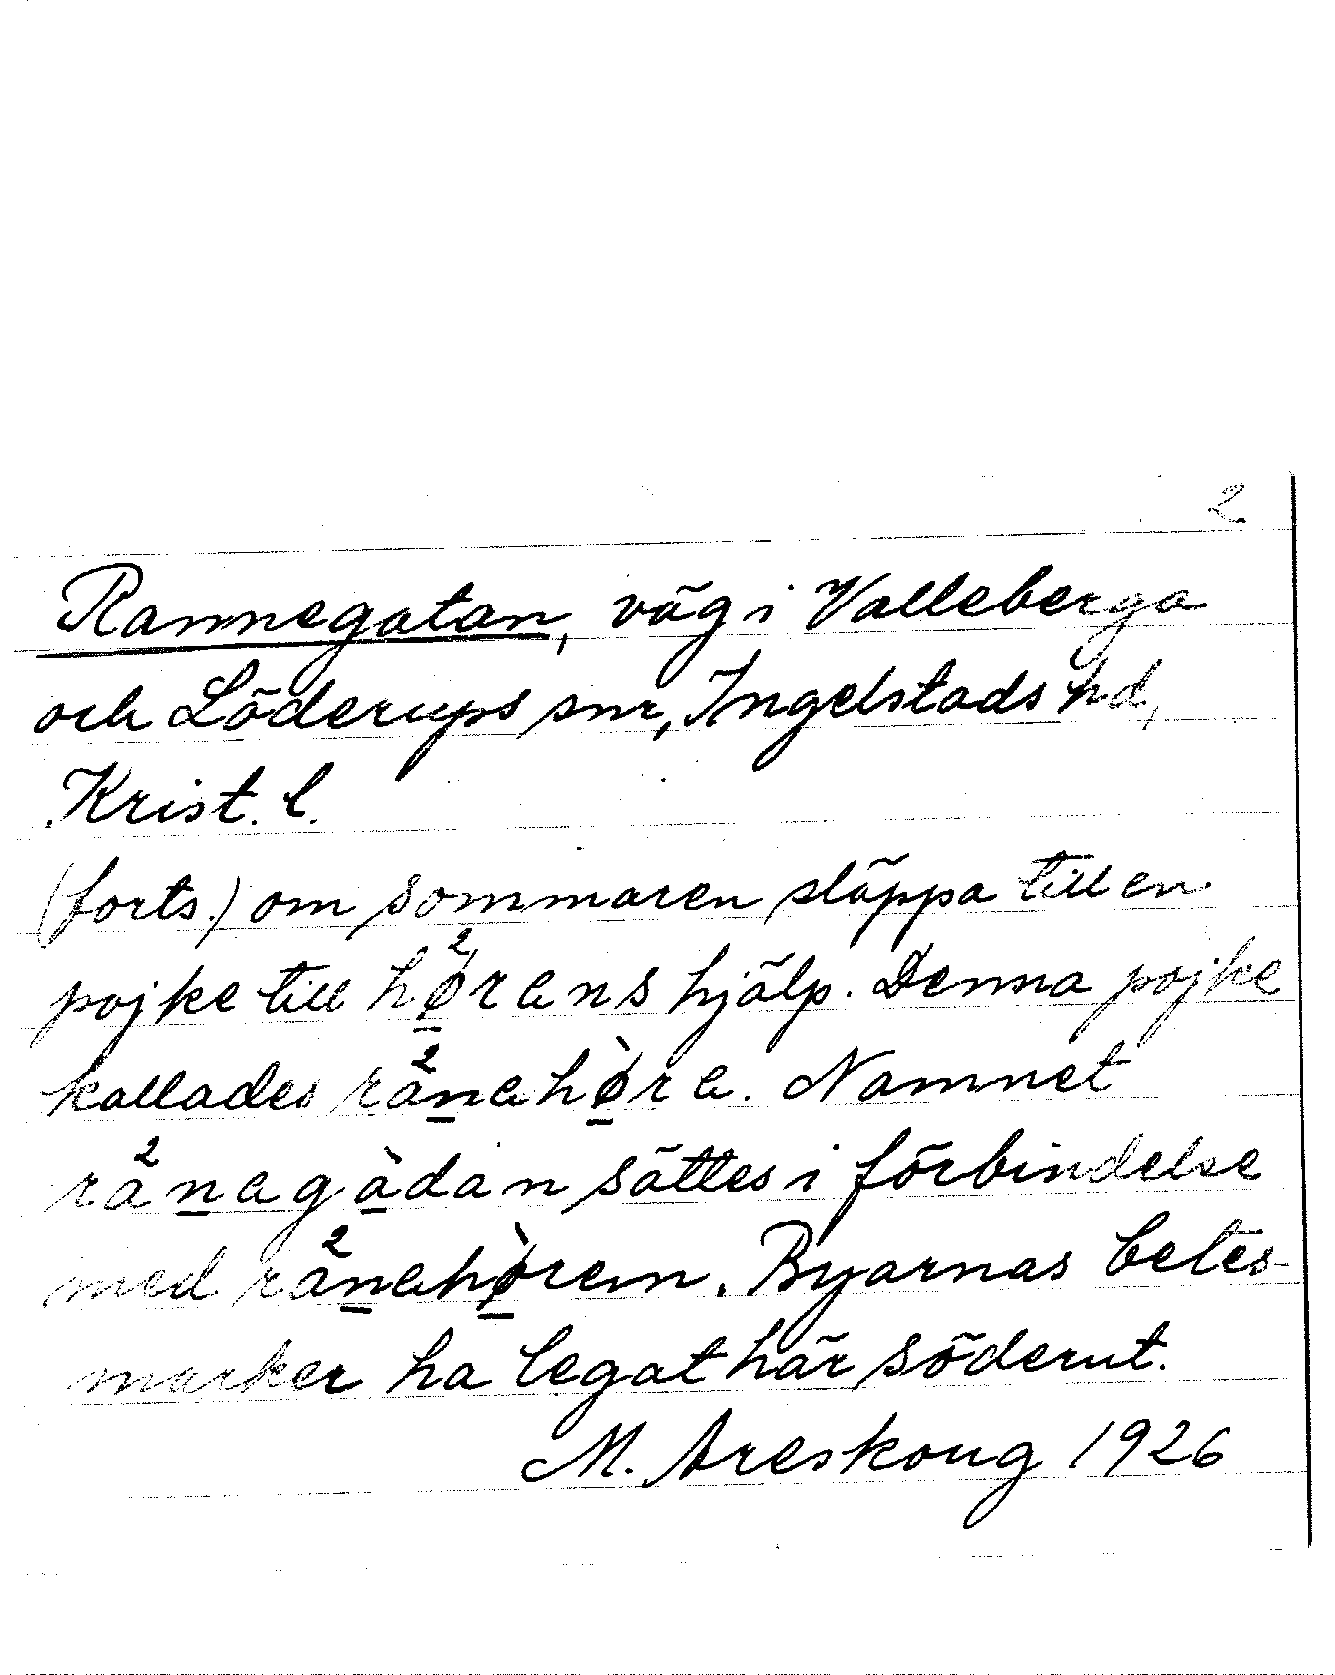 2
Rannegatan, väg i Valleberga
och Löderups snr, Ingelstads hd,
Krist. l.
(forts.) om sommaren släppa till en
pojke till hø̱²rans hjälp. Denna pojke
kallades rå²ṉahø̱̀ra. Namnet
rå²ṉagà̱dan sättes i förbindelse
med rå²ṉahø̱̀ren. Byarnas betes-
marker ha legat här söderut.
M. Areskoug 1926